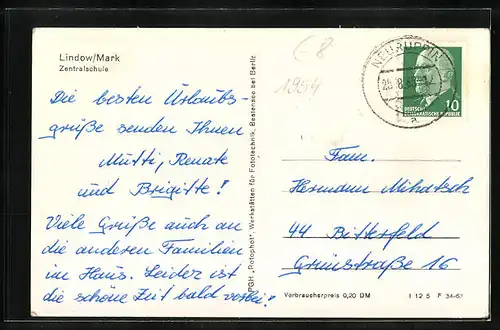 Lindow/Mark
Zentralschule
Die besten Urlaubs-
grüße senden Ihnen
Mutti, Renate
und Brigitte!
Viele Grüße auch an
die anderen Familien
im Haus. Leider ist
die schöne Zeit bald vorbei!
PGH „Rotophot", Werkstätten für Fototechnik, Bestensee bei Berlin
1954
NEURUPPIN
a
DEUTSCHE
DEMOKRATISCHE REPUBLIK
10
Fam.
Hermann Mihatsch
44 Bitterfeld
Grünstraße 16
Verbraucherpreis 0,20 DM
I 12 5 F 34-63